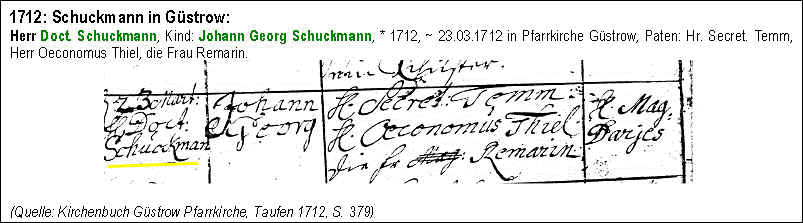 1712: Schuckmann in Güstrow:
Herr Doct. Schuckmann, Kind: Johann Georg Schuckmann, * 1712, ~ 23.03.1712 in Pfarrkirche Güstrow, Paten: Hr. Secret. Temm,
Herr Oeconomus Thiel, die Frau Remarin.
23 Mart:
H. Doct:
Schuckman
Johann
Georg
H. Secret: Temm
H. Oeconomus Thiel
die Fr Remarin
H. Mag:
Darjes
(Quelle: Kirchenbuch Güstrow Pfarrkirche, Taufen 1712, S. 379)